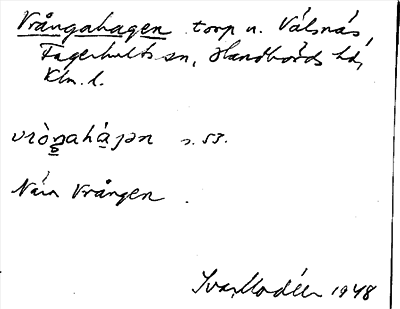 Vrångahagen torp u. Välsnäs,
Fagerhults sn, Handbörds hd,
Klm. l.
vrò̀ŋahájən s. 53.
Nära Vrången.
Ivar Modéer 1948